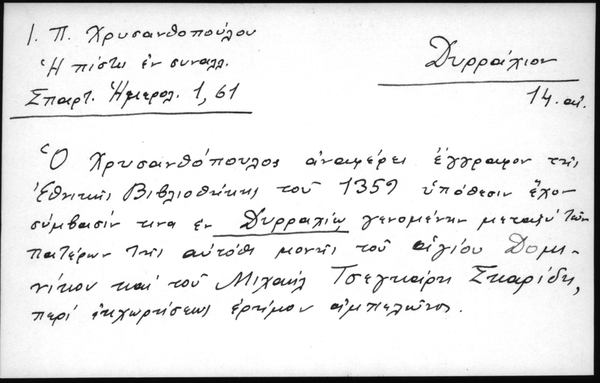 Ι. Π. Χρυσανθοπούλου
Ἡ πίστις ἐν συναλλ.
Σπαρτ. Ἡμερολ. 1, 61
Δυρράχιον
14. αἰ.
Ὁ Χρυσανθόπουλος ἀναφέρει ἔγγραφον τῆς
Ἐθνικῆς Βιβλιοθήκης τοῦ 1359 ὑπόθεσιν ἔχον
σύμβασίν τινα ἐν Δυρραχίῳ γενομένην μεταξὺ τῶν
πατέρων τῆς αὐτόθι μονῆς τοῦ ἁγίου Δομι-
νίκου καὶ τοῦ Μιχαὴλ Τσεγκάρη Σκαρίδη,
περὶ ἐκχωρήσεως ἐρήμου ἀμπελῶνος.